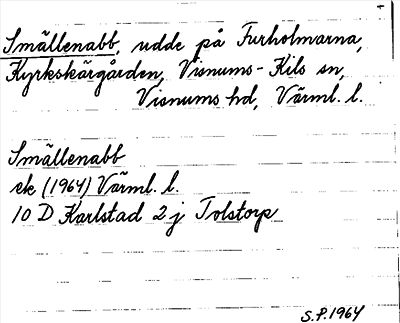 Smällenabb, udde på Furholmarna,
Kyrkskärgården, Visnums-Kils sn,
Visnums hd, Värml. l.
Smällenabb
ek (1964) Värml. l.
10 D Karlstad 2 j Tolstorp
S.P. 1964